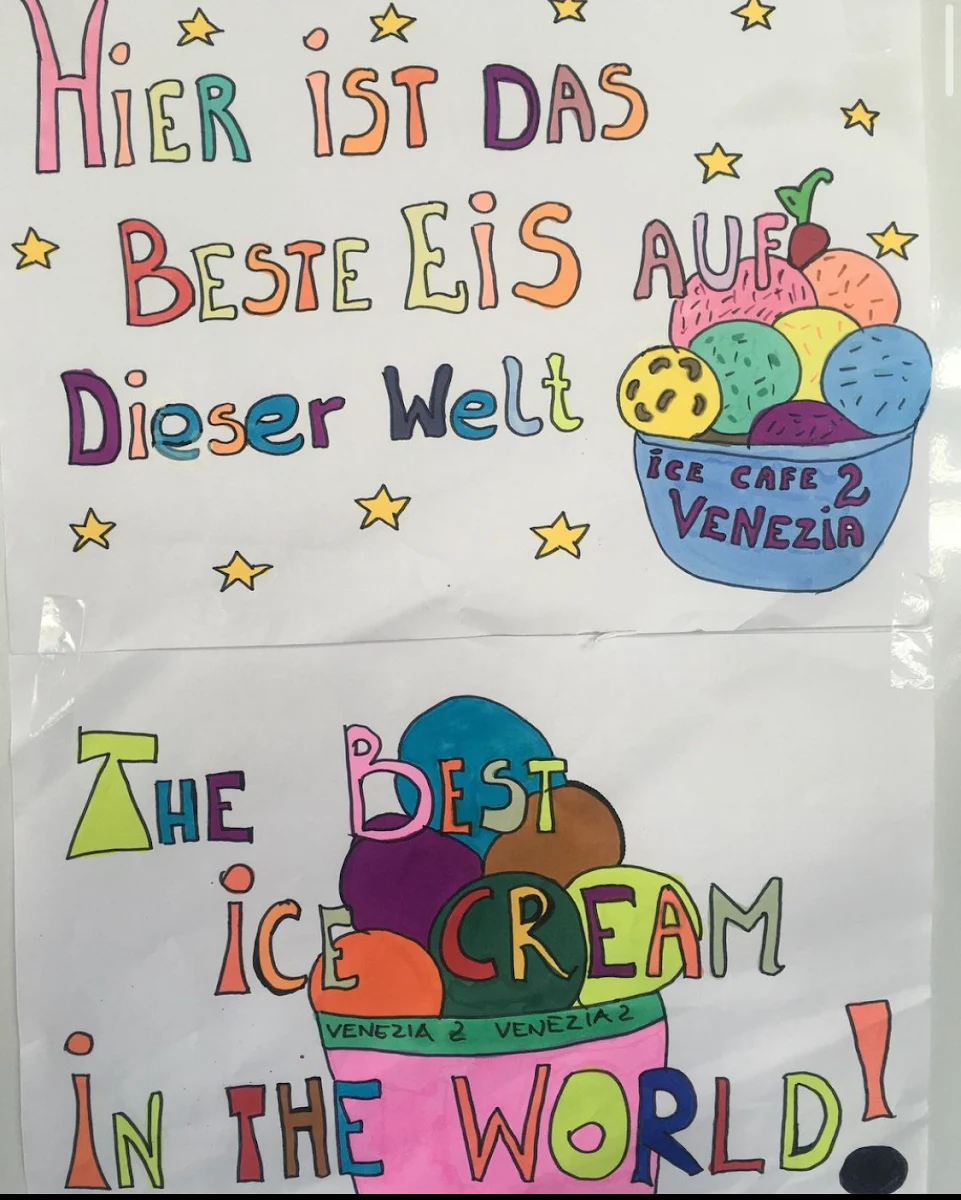 HiER iST DAS
BESTE EiS AUF
Dieser Welt
iCE CAFE 2
VENEZiA
THE BEST
iCE CREAM
VENEZIA 2 VENEZIA 2
iN THE WORLD!